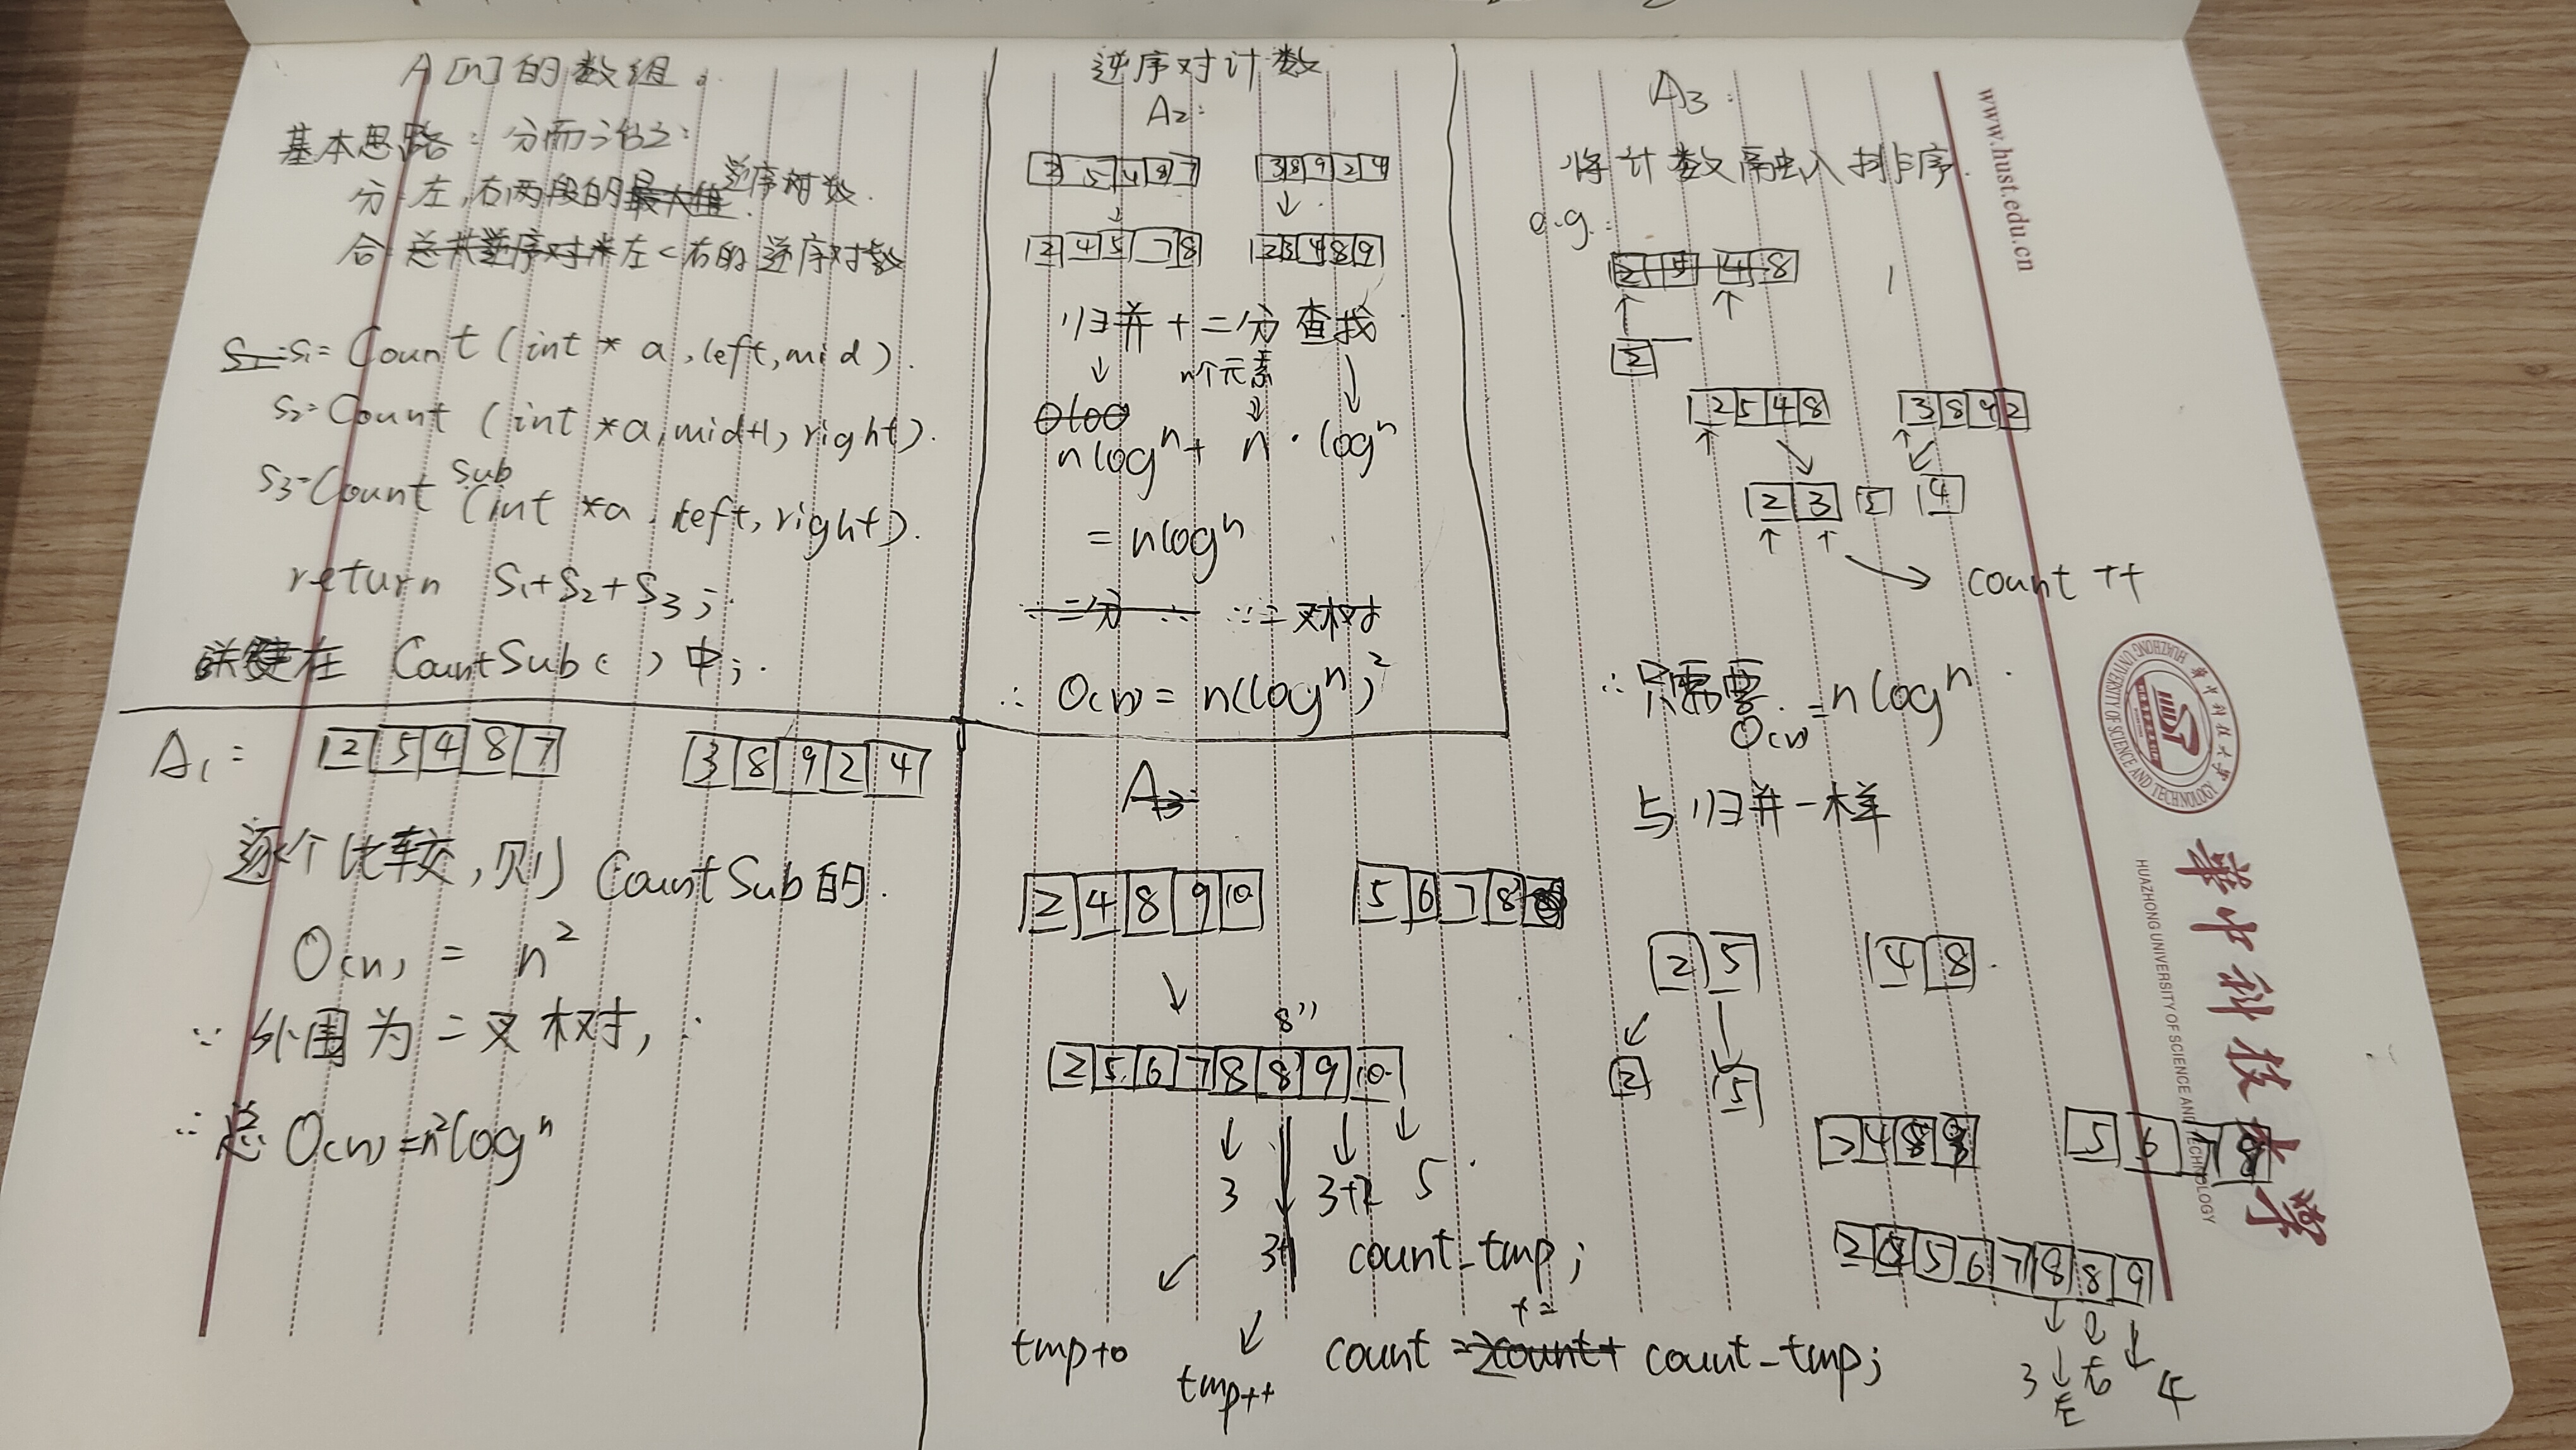 A[n]的数组。
基本思路：分而治之：
分：左，右两段的最大值逆序对数.
合：总共逆序对=左<右的逆序对数
S1=S1=Count(int * a,left,mid).
S2=Count(int *a,mid+1,right).
S3=Count sub(int *a,left,right).
return S1+S2+S3;
关键在 CountSub( )中;.
A1:
2 5 4 8 7
3 8 9 2 4
逐个比较,则 CountSub的.
O(n) = n²
∵ 外围为二叉树,
∴总 O(n)=n²log^n
逆序对计数
A2:
5 4 8 7
3 8 9 2 4
2 4 5 7 8
2 3 4 8 9
归并+二分查找
n个元素
nlog^n + n · log^n
= nlog^n
∵二分 ∴ ∵二叉树
∴ O(n) = n(log^n)²
A3:
2 4 8 9 10
5 6 7 8
8''
2 5 6 7 8 8' 9 10
3 3+2 5
3+1
count_tmp;
tmp+0
tmp++
+=
count =2count+ count_tmp;
A3:
将计数融入排序.
e.g.:
2 5 4 8
2
2 5 4 8
3 8 9 2
2 3 5 4
count ++
∴只需要 O(n) = nlog^n
与归并一样
2 5
4 8
2
5
2 4 8 9
5 6 7 8
2 4 5 6 7 8 8 9
3 右 4
左
www.hust.edu.cn
华中科技大学
HUAZHONG UNIVERSITY OF SCIENCE AND TECHNOLOGY
华中科技大学
HUAZHONG UNIVERSITY OF SCIENCE AND TECHNOLOGY